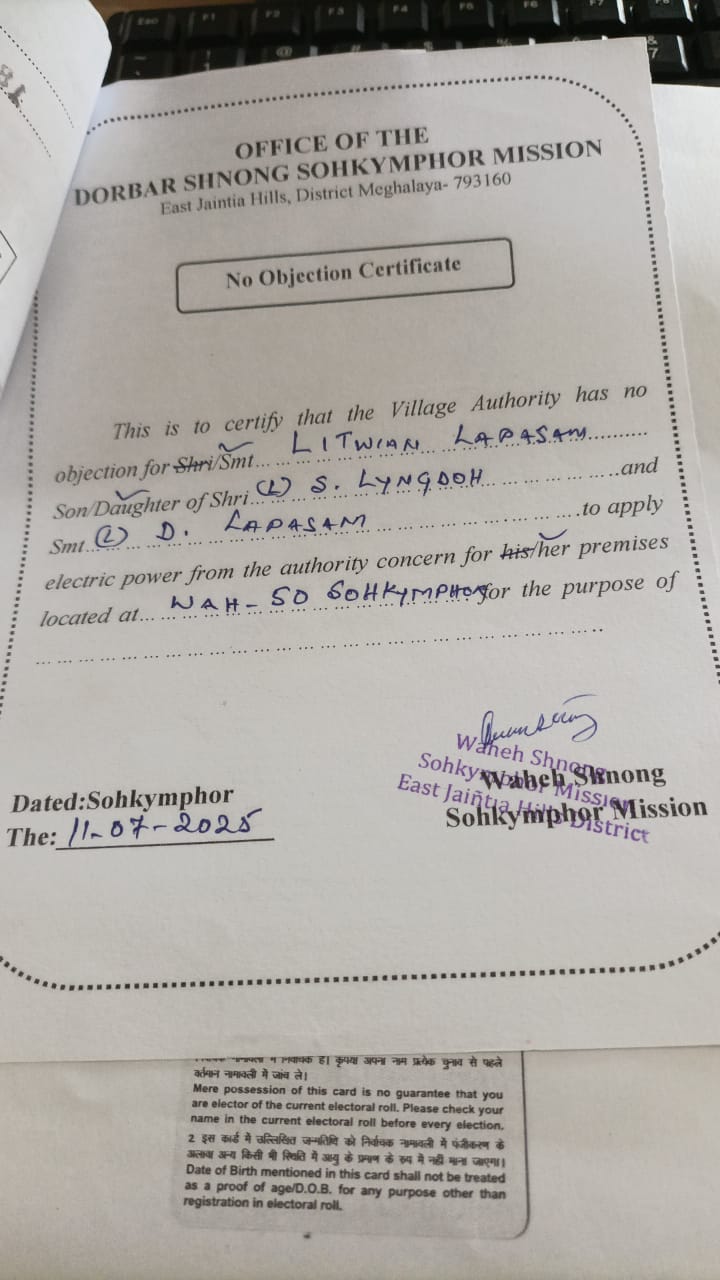 Esc F1 F2 F3 F4 F5 F6 F7
OFFICE OF THE
DORBAR SHNONG SOHKYMPHOR MISSION
East Jaintia Hills, District Meghalaya- 793160
No Objection Certificate
This is to certify that the Village Authority has no
objection for Shri/Smt... LITWIAN LAPASAM..........
Son/Daughter of Shri (L) S. LYNGDOH... ... ... ... ...and
Smt...(L) D. LAPASAM ... ... ... ... ... ... ...to apply
electric power from the authority concern for his/her premises
located at... WAH-SO SOHKYMPHOR for the purpose of
... ... ... ... ... ... ... ... ... ... ... ... ... ... ... ... ... ... ... ..
Waheh Shnong
Sohkymphor Mission
East Jaintia Hills District
Waheh Shnong
Sohkymphor Mission
Dated:Sohkymphor
The: 11-07-2025
में निर्वाचक हैं। कृपया अपना नाम प्रत्येक चुनाव से पहले
वर्तमान नामावली में जांच लें।
Mere possession of this card is no guarantee that you
are elector of the current electoral roll. Please check your
name in the current electoral roll before every election.
2 इस कार्ड में उल्लिखित जन्मतिथि को निर्वाचक नामावली में पंजीकरण के
अलावा अन्य किसी भी स्थिति में आयु के प्रमाण के रुप में नहीं माना जाएगा।
Date of Birth mentioned in this card shall not be treated
as a proof of age/D.O.B. for any purpose other than
registration in electoral roll.